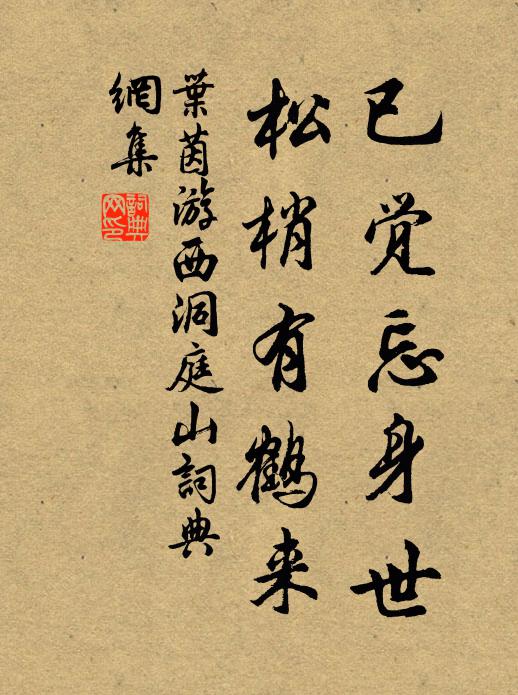 已觉忘身世
松梢有鹤来
葉茵游西洞庭山詞典
網集
詞典
网印